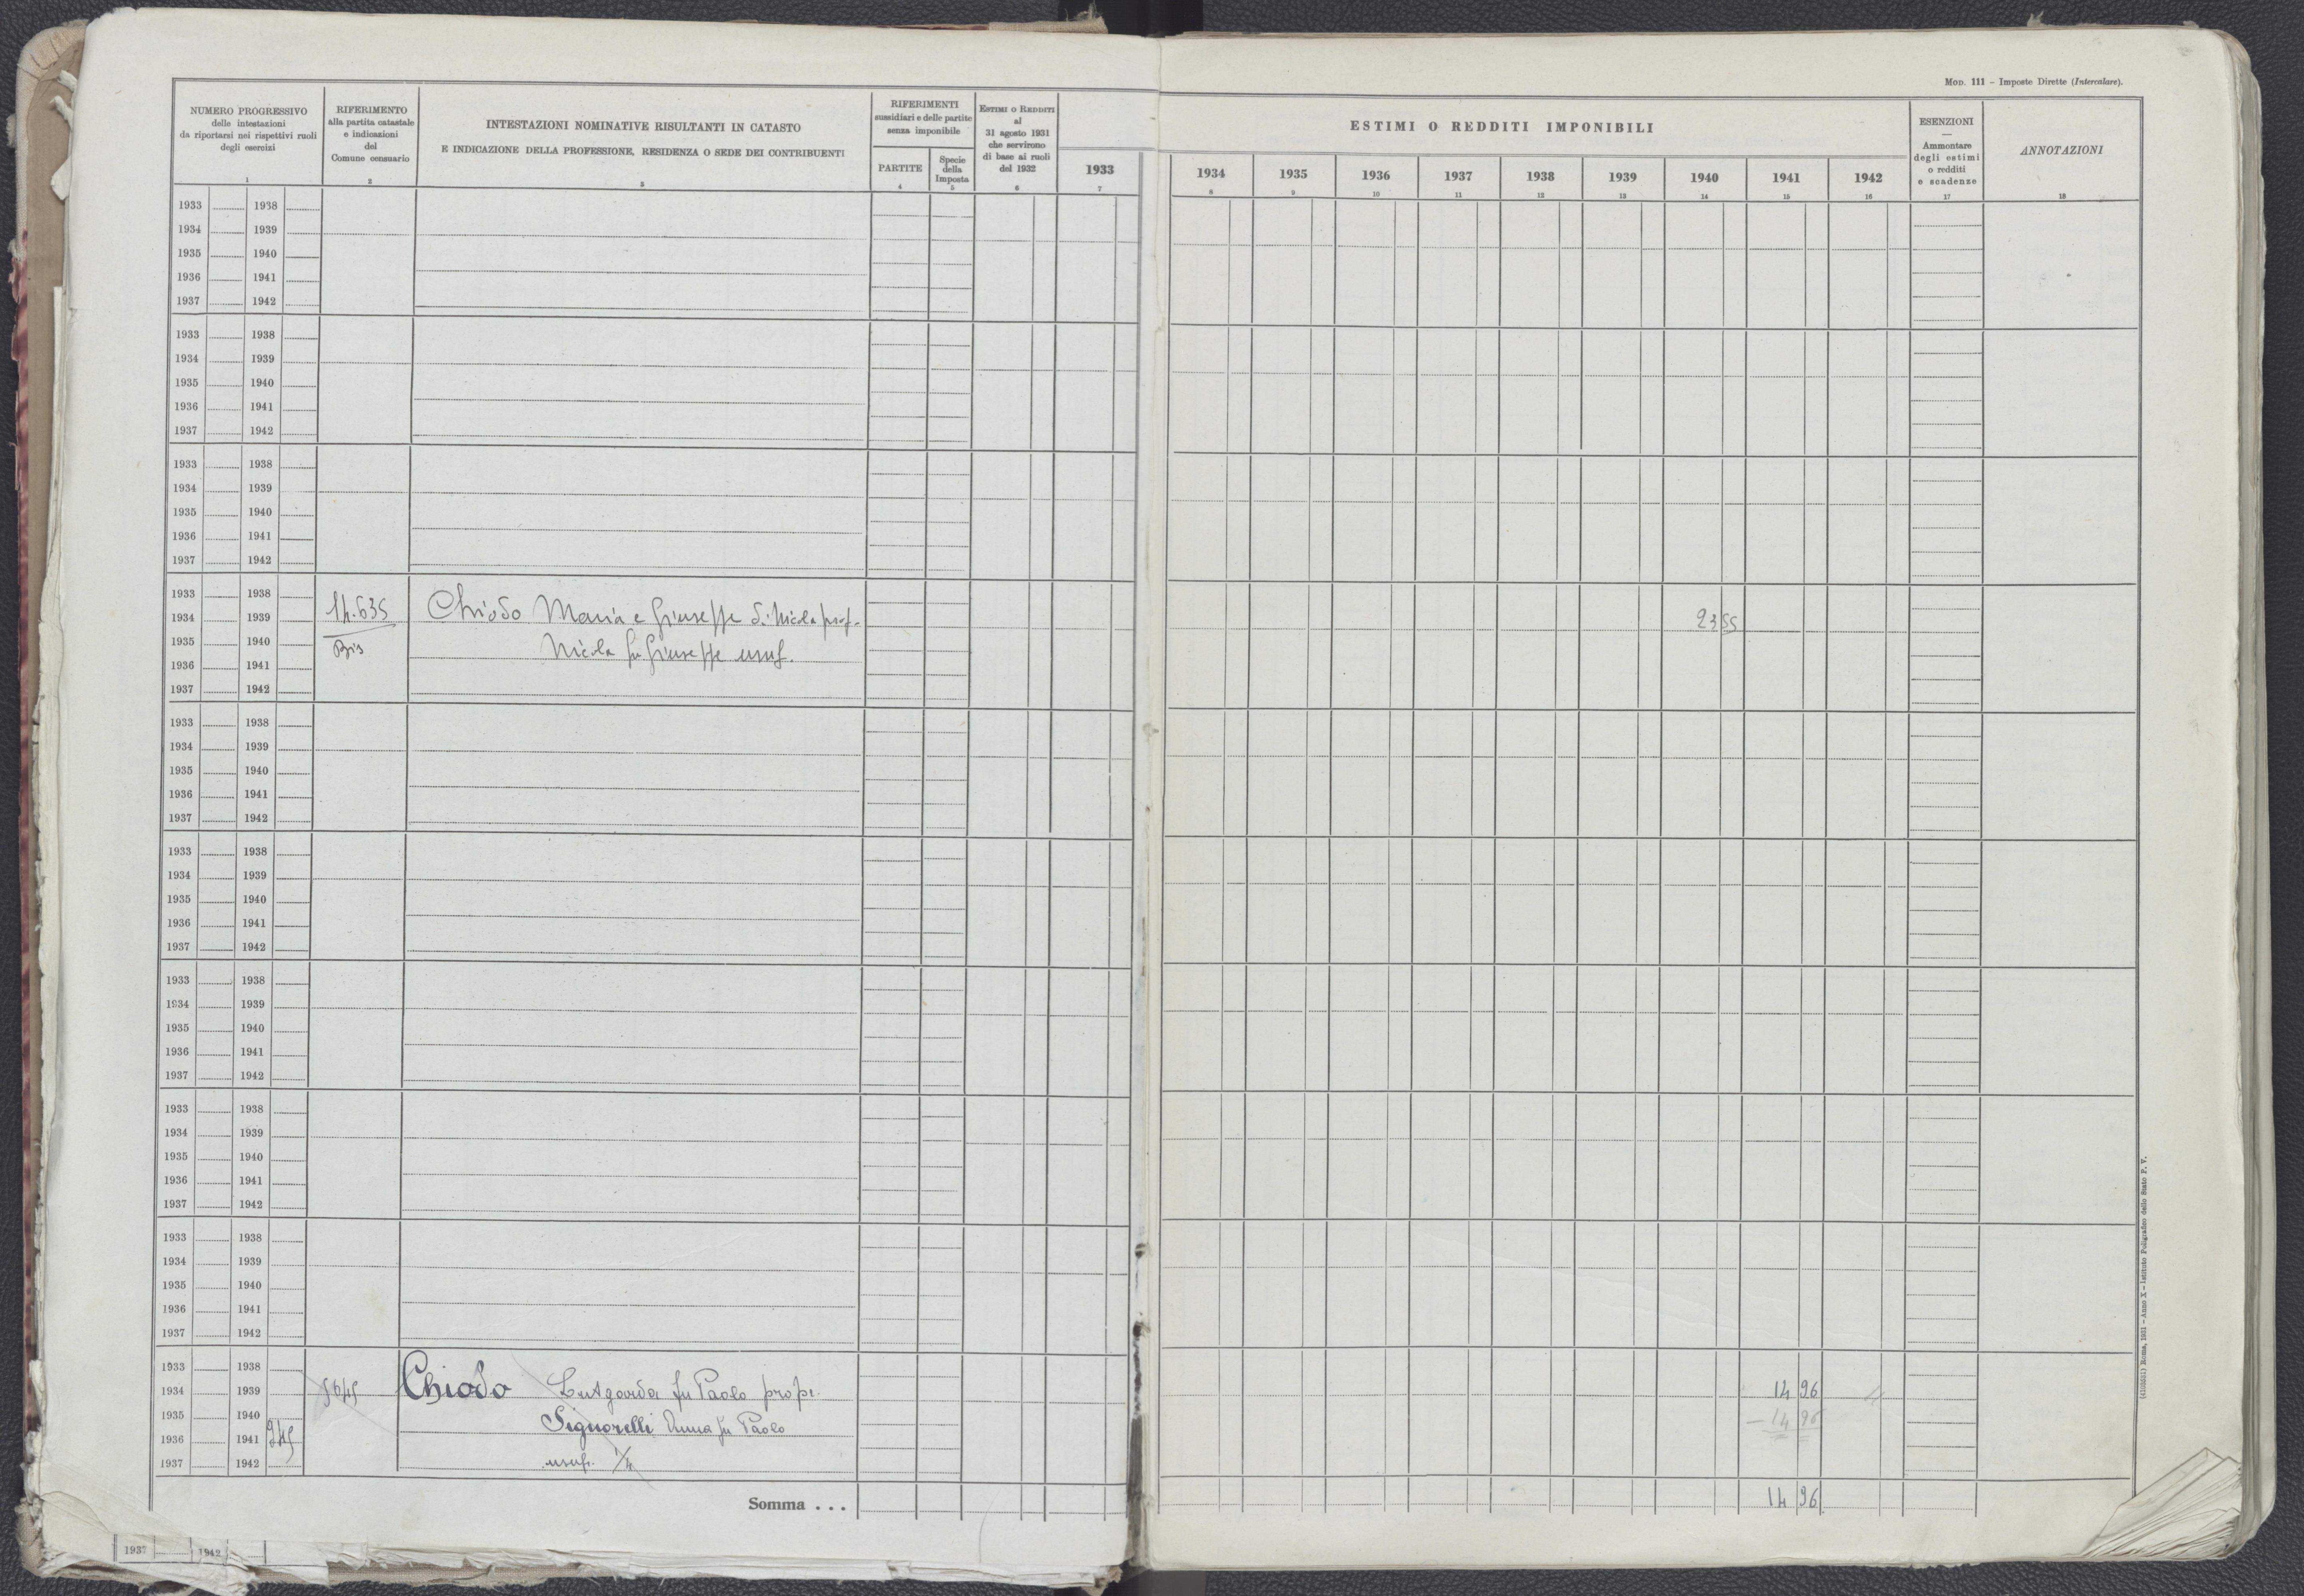 Mod. 111 – Imposte Dirette (Intercalare).
NUMERO PROGRESSIVO
delle intestazioni
da riportarsi nei rispettivi ruoli
degli esercizi
1
RIFERIMENTO
alla partita catastale
e indicazioni
del
Comune censuario
2
INTESTAZIONI NOMINATIVE RISULTANTI IN CATASTO
E INDICAZIONE DELLA PROFESSIONE, RESIDENZA O SEDE DEI CONTRIBUENTI
3
RIFERIMENTI
sussidiari e delle partite
senza imponibile
PARTITE
4
Specie
della
Imposta
5
ESTIMI O REDDITI
al
31 agosto 1931
che servirono
di base ai ruoli
del 1932
6
1933
7
ESTIMI O REDDITI IMPONIBILI
1934 1935 1936 1937 1938 1939 1940 1941 1942
8 9 10 11 12 13 14 15 16
ESENZIONI
—
Ammontare
degli estimi
o redditi
e scadenze
17
ANNOTAZIONI
18
1933 1938
1934 1939
1935 1940
1936 1941
1937 1942
1933 1938
1934 1939
1935 1940
1936 1941
1937 1942
1933 1938
1934 1939
1935 1940
1936 1941
1937 1942
1933 1938
1934 1939 14.635 Chiodo Maria e Giuseppe di Nicola prop. 23 55
1935 1940 Bis Nicola fu Giuseppe usuf.
1936 1941
1937 1942
1933 1938
1934 1939
1935 1940
1936 1941
1937 1942
1933 1938
1934 1939
1935 1940
1936 1941
1937 1942
1933 1938
1934 1939
1935 1940
1936 1941
1937 1942
1933 1938
1934 1939
1935 1940
1936 1941
1937 1942
1933 1938
1934 1939
1935 1940
1936 1941
1937 1942
1933 1938
1934 1939 Chiodo Lutgarda fu Paolo propr. 14 96
1935 1940 Signorelli Anna fu Paolo – 14 96
1936 1941
1937 1942 usuf. 1/4
Somma . . . 14 96
1937 1942
(4103551) Roma, 1931 – Anno X – Istituto Poligrafico dello Stato P. V.